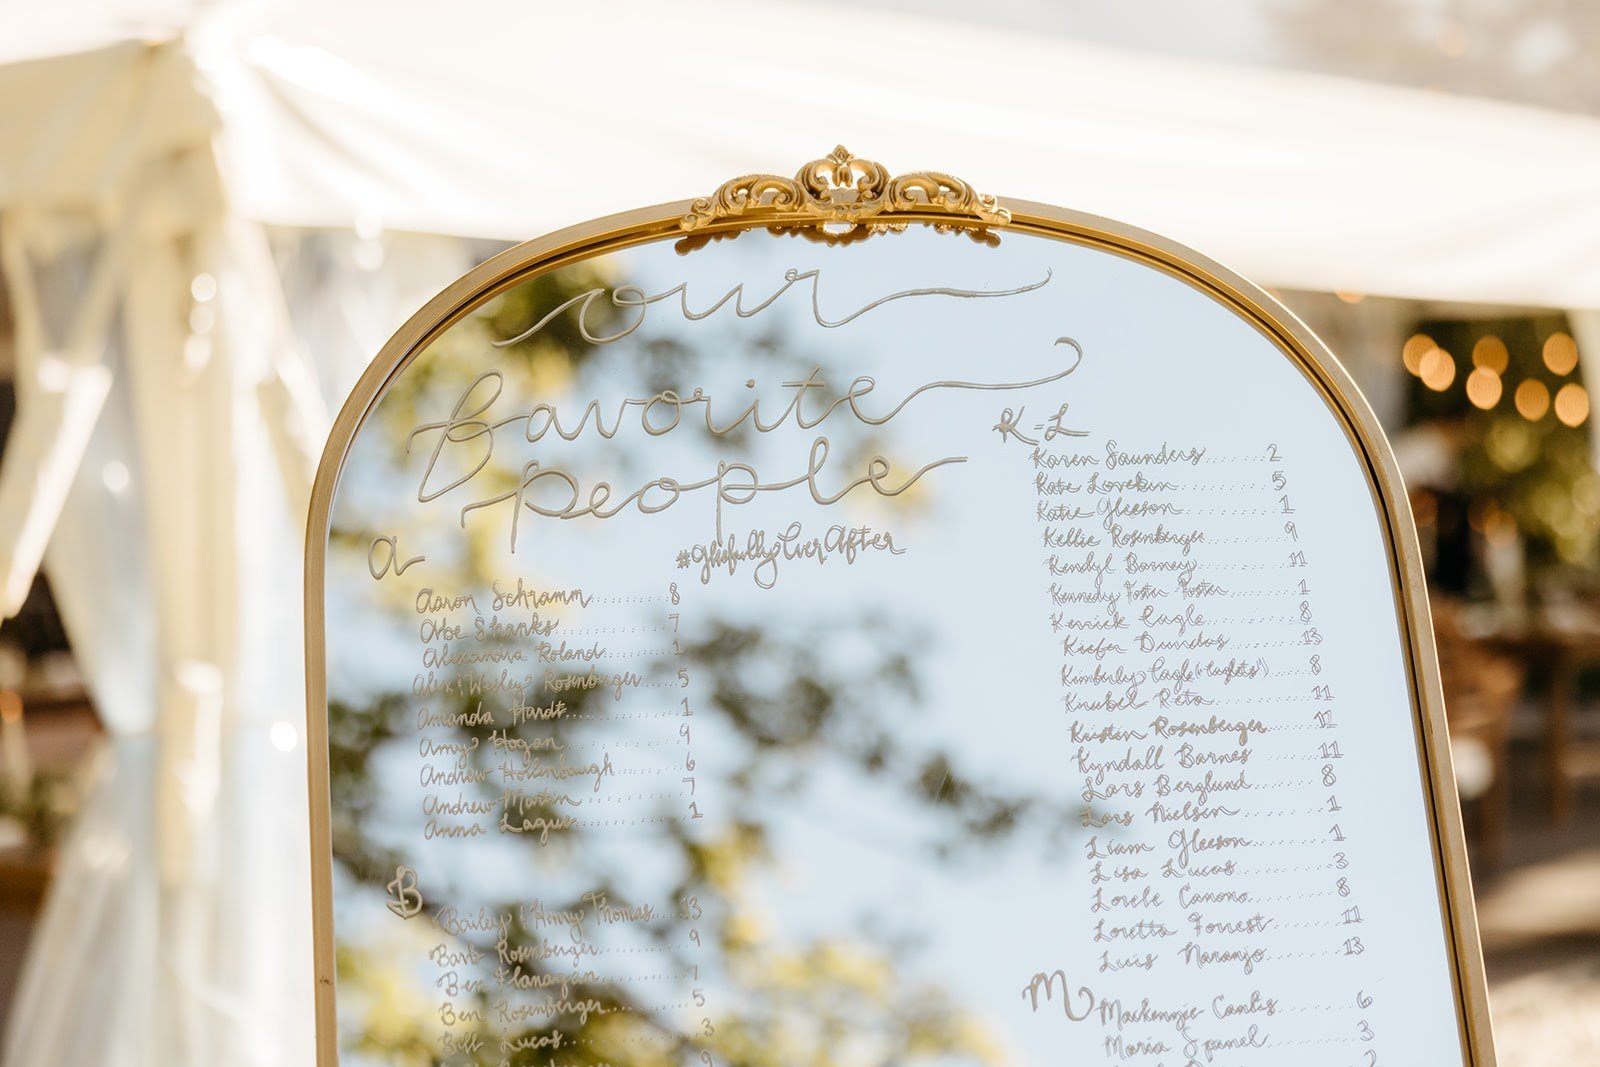 our
favorite
people
#GleefullyEverAfter
a
Aaron Schramm 8
Abe Shanks 7
Alexandra Roland 1
Alex & Wesley Rosenburger 5
Amanda Hardt 1
Amy Hogan 9
Andrew Hollenbaugh 6
Andrew Martin 7
Anna Lague 1
B
Bailey & Henry Thomas 13
Barb Rosenberger 9
Ben Flanagan 7
Ben Rosenberger 5
Bill Lucas 3
K-L
Karen Saunders 2
Kate Lovekin 5
Katie Gleeson 1
Kellie Rosenberger 9
Kendyl Barney 11
Kennedy Foster Foster 1
Kerrick Cagle 8
Kiefer Dundas 13
Kimberly Cagle ("Caglets") 8
Reta 11
Kristin Rosenberger 12
Kyndall Barnes 11
Lars Berglund 8
Lars Nielsen 1
Liam Gleeson 1
Lisa Lucas 3
Lorele Canono 8
Loretta Forrest 11
Luis Naranjo 13
M
Mackenzie 6
Maria Spanel 3